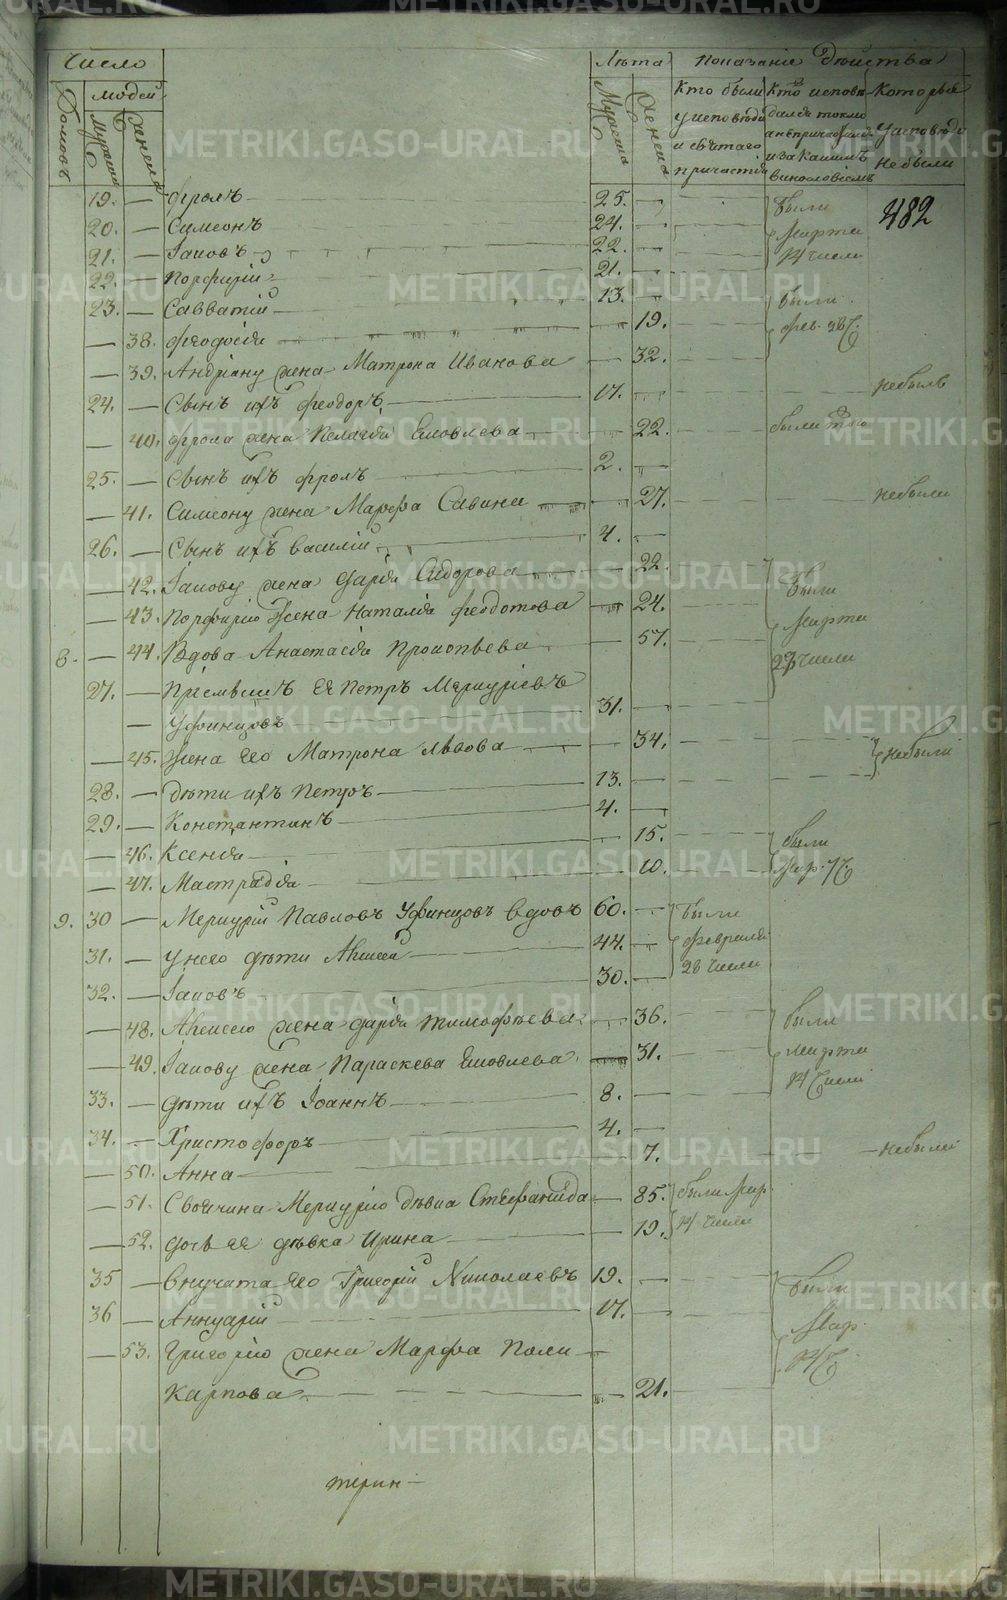 Число Лѣта Показаніе Дѣиства
Домовъ людей Мужеска женска Мужеска женска Кто были у исповѣди и святаго причастія Кто исповѣдался токмо а не причас и за какимъ винословіемъ Которые у исповѣди не были
19. — Фролъ 25. были 482
20. — Симеонъ 24. марта
21. — Іаковъ 22. 14 числа
22. — Порфирій 21.
23. — Савватій 13. были
— 38. Феодосія 19. фев. 28 ч.
— 39. Андріану жена Матрона Иванова 32.
24. — Сынъ ихъ Феодоръ 14. небылъ
— 40. Фрола жена Пелагея Яковлева 22. были
25. — Сынъ ихъ Фролъ 2.
— 41. Симеону жена Марфа Савина 27. небыли
26. — Сынъ ихъ Василій 4.
— 42. Іакову жена Дарія Сидорова 22. были
— 43. Порфирію Жена Наталія Феодотова 24. марта
8. — 44. Вдова Анастасія Прокопьева 57. числа
27. — Пріемышъ Ея Петръ Меркурьевъ
— Уфинцовъ 31.
— 45. Жена Его Матрона Львова 34. небыли
28. — Дѣти ихъ Петръ 13.
29. — Константинъ 4.
— 46. Ксенія 15. были
— 47. Мастрадія 10. мар. 7 ч.
9. 30 — Меркурій Павловъ Уфинцовъ вдовъ 60. были
31. — у него дѣти Алексей 44. февраля
32. — Іаковъ 30. 28 числа
— 48. Алексею жена Дарія Тимофѣева 36. были
— 49. Іакову жена Параскева Яковлева 31. марта
33. — Дѣти ихъ Іоаннъ 8. 14 числа
34. — Христофоръ 4.
— 50. Анна 7. небыли
— 51. Своячина Меркурію дѣвка Стефанида 85. были мар.
— 52. Дочь Ея дѣвка Ирина 19. 14 числа
35 — Внучата Его Григорій Николаевъ 19. были
36 — Аннуарій 14. Мар.
— 53. Григорію жена Марфа Поли 14 ч.
карпова 21.
терин
METRIKI.GASO-URAL.RU